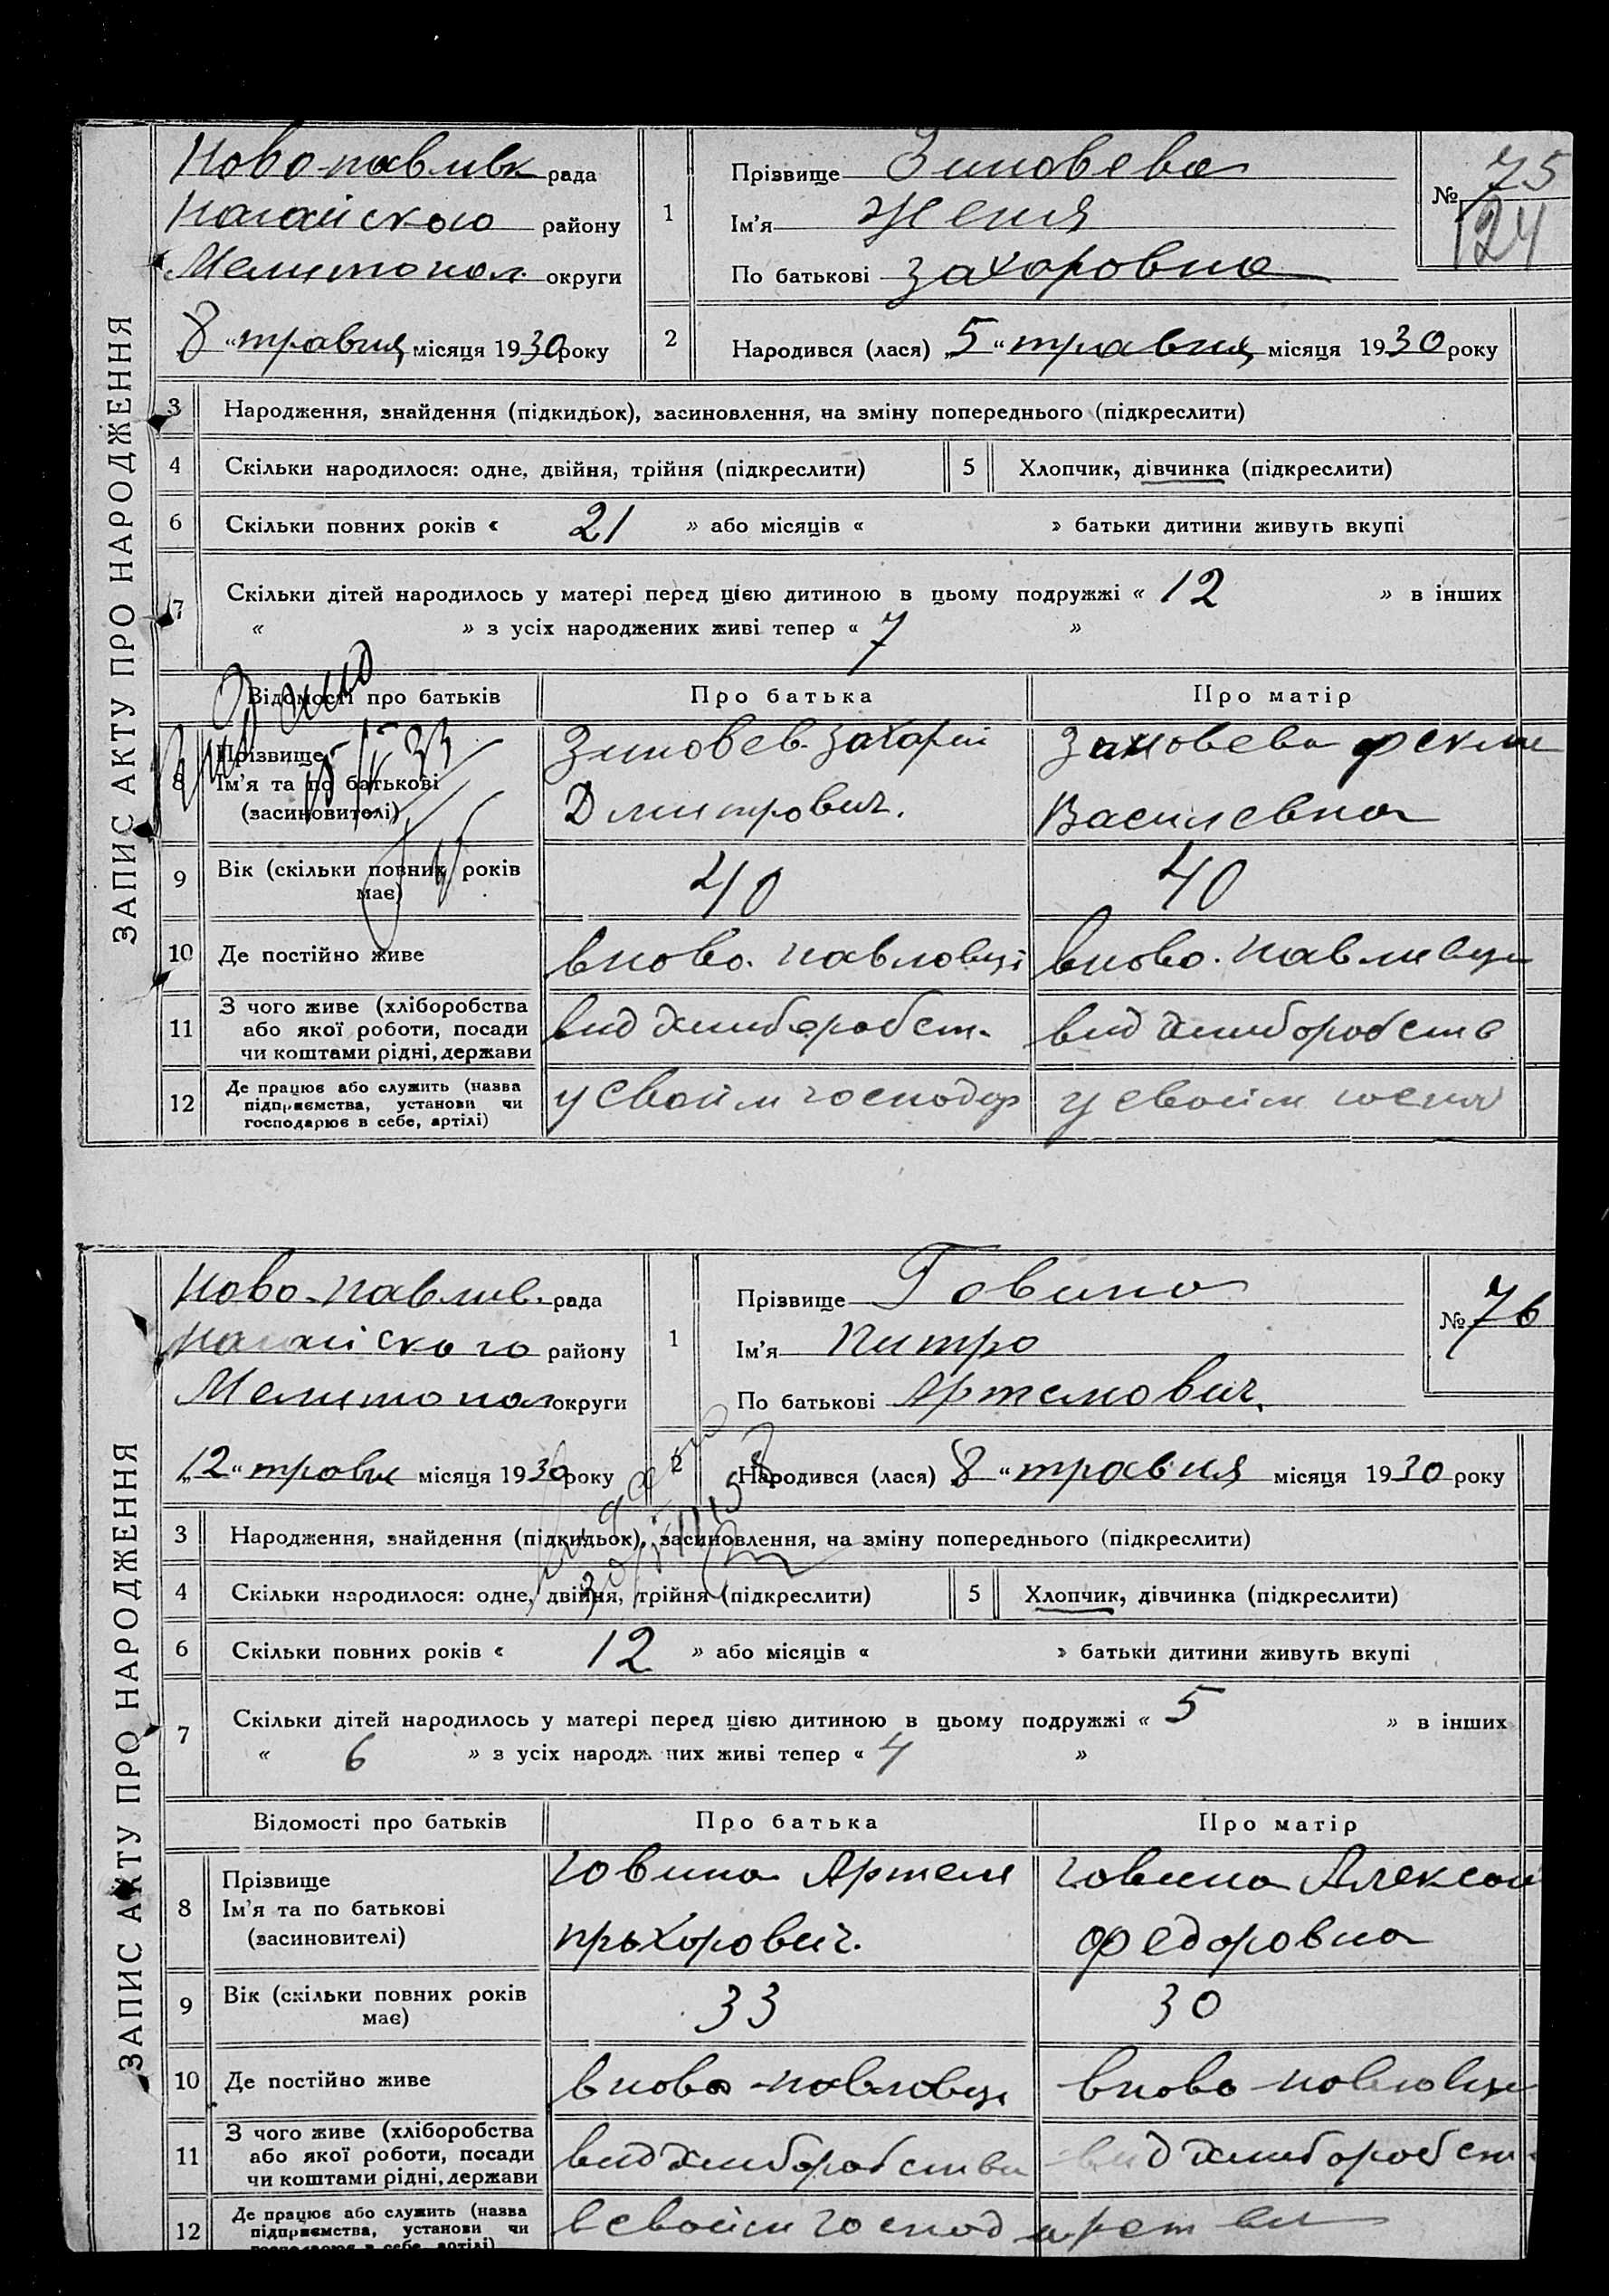 ЗАПИС АКТУ ПРО НАРОДЖЕННЯ
Новопавливк рада
Нагайского району
Мелитопол. округи
„8“ травня місяця 1930 року
1
Прізвище Зиновева
Ім'я Женя
По батькові Захаровна
№ 75
124
2
Народився (лася) „5“ травня місяця 1930 року
3 Народження, знайдення (підкидьок), засиновлення, на зміну попереднього (підкреслити)
4 Скільки народилося: одне, двійня, трійня (підкреслити) 5 Хлопчик, дівчинка (підкреслити)
6 Скільки повних років « 21 » або місяців « » батьки дитини живуть вкупі
7 Скільки дітей народилось у матері перед цією дитиною в цьому подружжі « 12 » в інших
« » з усіх народжених живі тепер « 7 »
Відомості про батьків Про батька Про матір
8 Прізвище
Ім'я та по батькові
(засиновителі)
Зиновев. Захарий
Дмитрович.
Зиновева Фекли
Василевна
9 Вік (скільки повних років
має)
40 40
10 Де постійно живе вново. павловці вново. павливци
11 З чого живе (хліборобства
або якої роботи, посади
чи коштами рідні, держави
вид хлиборобст. вид хлиборобств
12 Де працює або служить (назва
підприємства, установи чи
господарює в себе, артілі)
у своїм господар у своїм
ЗАПИС АКТУ ПРО НАРОДЖЕННЯ
Ново-павлив. рада
Нагайского району
Мелитопол округи
„12“ травн місяця 1930 року
1
Прізвище Говина
Ім'я Питро
По батькові Артемович.
№ 76
2
Народився (лася) 8 “ травня місяця 1930 року
3 Народження, знайдення (підкидьок), засиновлення, на зміну попереднього (підкреслити)
4 Скільки народилося: одне, двійня, трійня (підкреслити) 5 Хлопчик, дівчинка (підкреслити)
6 Скільки повних років « 12 » або місяців « » батьки дитини живуть вкупі
7 Скільки дітей народилось у матері перед цією дитиною в цьому подружжі « 5 » в інших
« 6 » з усіх народж них живі тепер « 4 »
Відомості про батьків Про батька Про матір
8 Прізвище
Ім'я та по батькові
(засиновителі)
Говина Артем
прохорович.
Говина Алексан
Федоровна
9 Вік (скільки повних років
має)
33 30
10 Де постійно живе вново-павловци вново-павловци
11 З чого живе (хліборобства
або якої роботи, посади
чи коштами рідні, держави
вид хлиборобства вид хлиборобст.
12 Де працює або служить (назва
підприємства, установи чи
господарює в себе, артілі)
в своїм господарстви